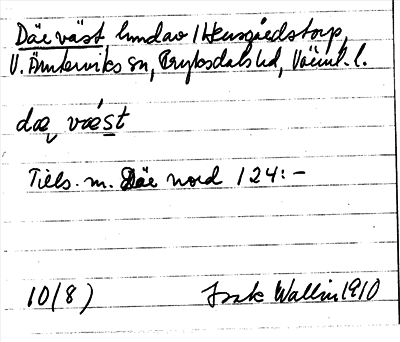 Däe väst lindar / Hensgårdstorp,
V. Ämterviks sn, Fryksdals hd, Värml. l.
dæ vǽst
Tills. m. Däe nord 124:-
10/8) Wallin 1910